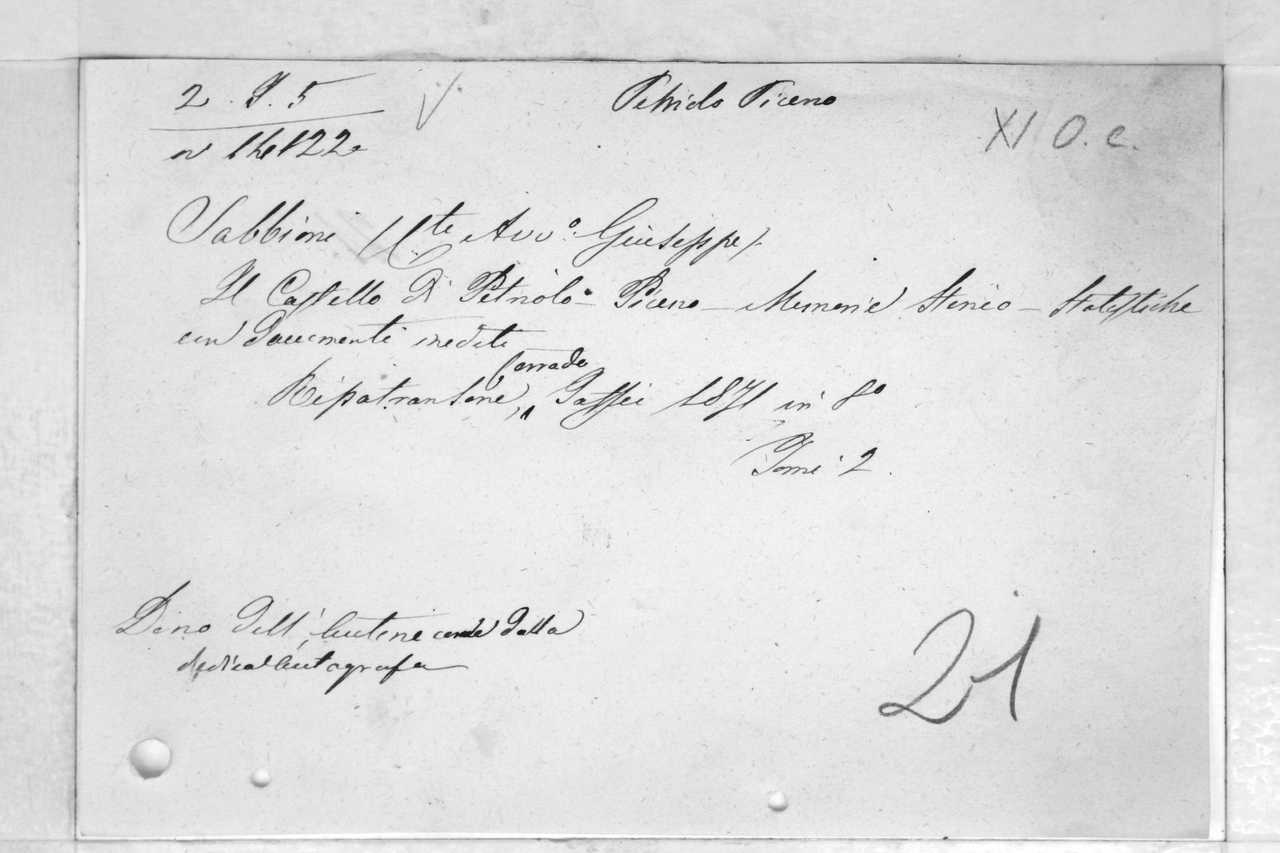 2. I. 5
Petriolo Piceno
XI O. c.
n 141122
Sabbioni (Cte Avvo. Giuseppe)
Il Castello di Petriolo - Piceno - Memorie Storico - Statistiche
con Documenti inediti
Corrado
Ripatransone, Jaffei 1871 in 8o
Tomi 2.
Dono dell' Autore come dalla
dedica autografa
21